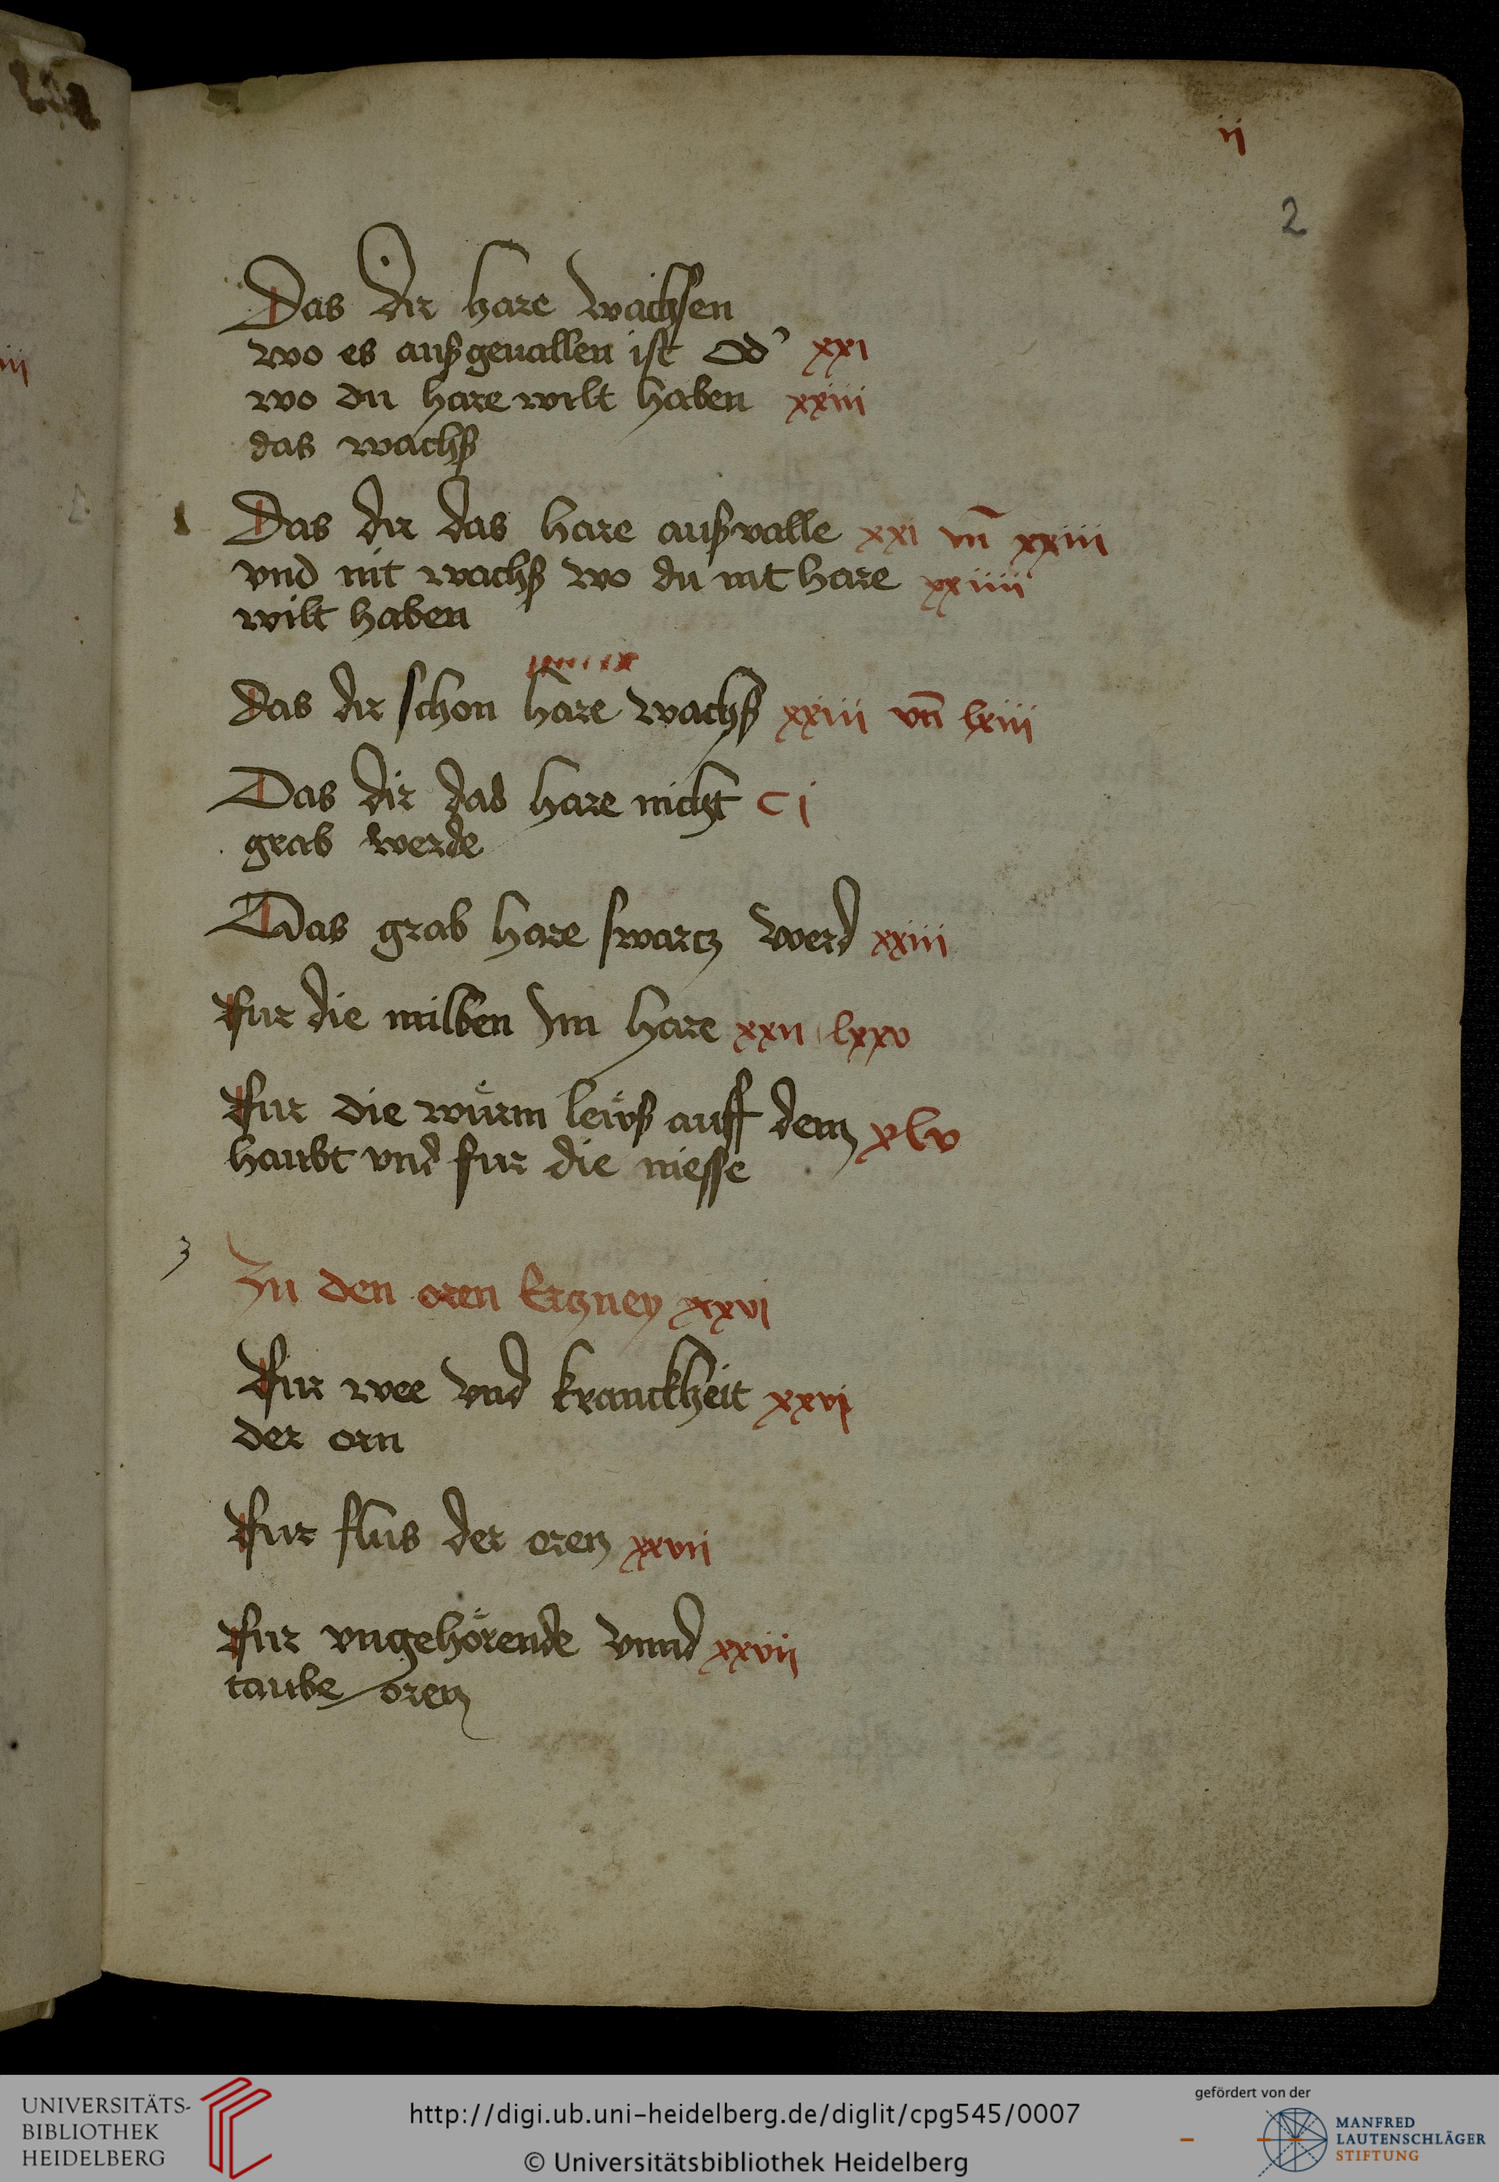 ij
2
Das dir hare wachsen
wo es außgeuallen ist od' xxi
wo du hare wilt haben xxiii
das wachß
Das dir das hare außvalle xxi vn̄ xxiiii
vnd nit wachß wo du nit hare xxiiii
wilt haben
Das dir schon hare wachß xxiii vn̄ lxiii
Das dir das hare nicht cj
grab werde
Das grab hare swarcz werd xxiii
Fur die milben Im hare xxii lxxv
Fur die wuͤrm leuͤß auff dem xlv
haubt vnd fur die niesse
3
Zu den oren Erczney xxvi
Fur wee vnd kranckheit xxvj
der orn
Fur flus der oren xxvii
Fur vngehoͤrende vnnd xxvij
taube oren
UNIVERSITÄTS-
BIBLIOTHEK
HEIDELBERG
http://digi.ub.uni-heidelberg.de/diglit/cpg545/0007
© Universitätsbibliothek Heidelberg
gefördert von der
MANFRED
LAUTENSCHLÄGER
STIFTUNG